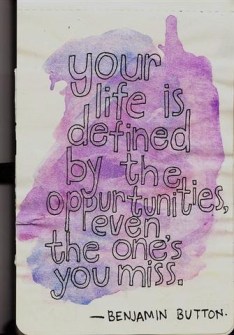 your
life is
defined
by the
oppurtunities,
even
the one's
you miss.
— BENJAMIN BUTTON.